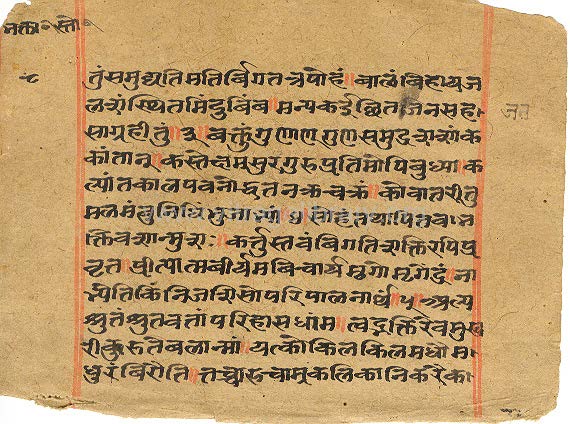 भक्ता॰स्तो॰
तुंसमुद्यतिमतिर्विगतत्रपोहं॥बालंविहायज
लसंस्थितमिंदुबिंब॥मन्यकईछितजनसहा
साग्रहीतुं॥३॥वक्तुंगुणोणगुणसमुद्रशशांक
कांतान्॥कस्तेक्षमसुरगुरुप्रतिमोपिबुध्या॥क
ल्पांतकालपवनोद्धतनक्रचक्रं॥कोवातरीतु
मलमंबुनिधिंभु
क्तिवशान्मुनीश॥कर्त्तुस्तवंविगतिशक्तिरपिप्र
वृत॥प्रीत्यात्मवीर्यमविचार्यमृगोमृगेंद्रं॥ना
भ्येतिकिंनिजशिसोपरिपालनार्थं॥५॥अल्प
श्रुतंश्रुतवतांपरिहासधांम॥त्वद्भक्तिरेवमुख
रीकुरुतेबलान्मां॥यत्कोकिलकिलमधौम
धुरंविरौति॥तच्चारुचामुकलिकानिकरैका